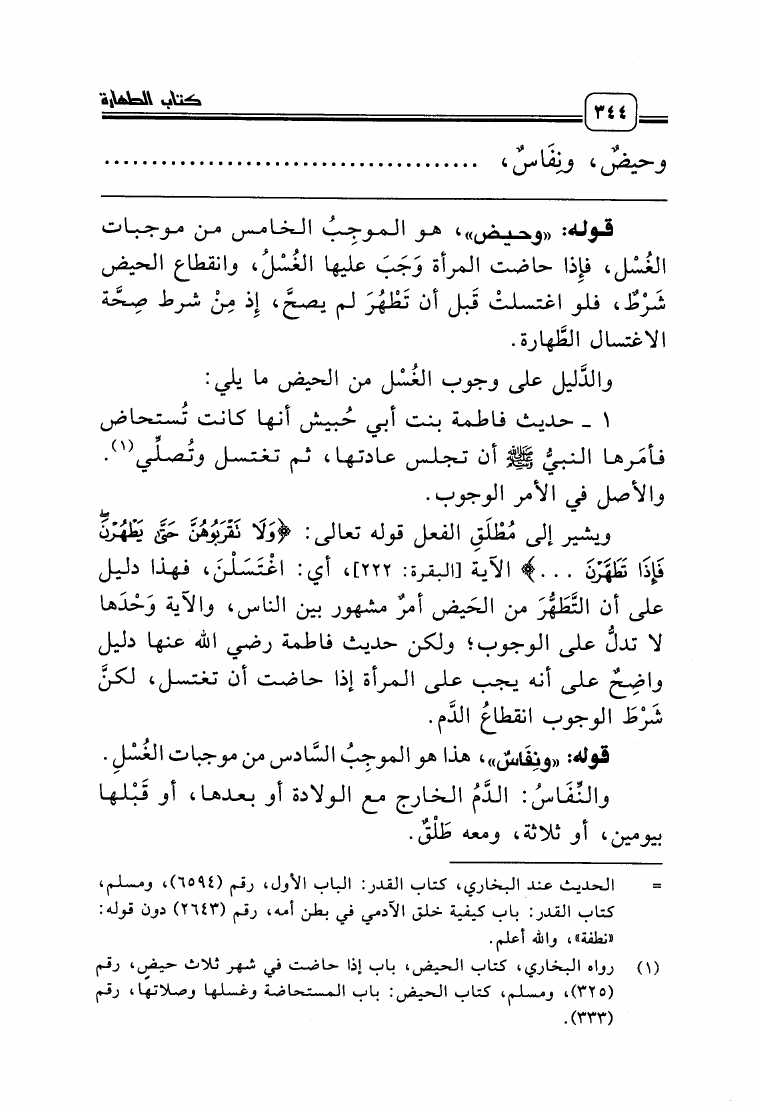 كتاب الطهارة
٣٤٤
وحيضٌ، ونِفَاسٌ، ........................................
قوله: «وحيض»، هو الموجِبُ الخامس من موجبات
الغُسْل، فإِذا حاضت المرأة وَجَبَ عليها الغُسْلُ، وانقطاع الحيض
شَرْطٌ، فلو اغتسلتْ قَبل أن تَطْهُرَ لم يصحَّ، إِذ مِنْ شرط صِحَّة
الاغتسال الطَّهارة.
والدَّليل على وجوب الغُسْل من الحيض ما يلي:
١ ـ حديث فاطمة بنت أبي حُبيش أنها كانت تُستحاض
فأمَرها النبيُّ ﷺ أن تجلس عادتها، ثم تغتسل وتُصلِّي(١).
والأصل في الأمر الوجوب.
ويشير إلى مُطْلَقِ الفعل قوله تعالى: ﴿وَلَا نَقْرَبُوهُنَّ حَتَّى يَطْهُرْنَۖ
فَإِذَا تَطَهَّرْنَ ...﴾ الآية [البقرة: ٢٢٢]، أي: اغْتَسَلْنَ، فهذا دليل
على أن التَّطَهُّرَ من الحَيض أمرٌ مشهور بين الناس، والآية وَحْدَها
لا تدلُّ على الوجوب؛ ولكن حديث فاطمة رضي الله عنها دليل
واضِحٌ على أنه يجب على المرأة إذا حاضت أن تغتسل، لكنَّ
شَرْطَ الوجوب انقطاعُ الدَّم.
قوله: «ونِفَاسٌ»، هذا هو الموجِبُ السَّادس من موجبات الغُسْلِ.
والنِّفَاسُ: الدَّمُ الخارج مع الولادة أو بعدها، أو قَبْلها
بيومين، أو ثلاثة، ومعه طَلْقٌ.
= الحديث عند البخاري، كتاب القدر: الباب الأول، رقم (٦٥٩٤)، ومسلم،
كتاب القدر: باب كيفية خلق الآدمي في بطن أمه، رقم (٢٦٤٣) دون قوله:
«نطفة»، والله أعلم.
(١) رواه البخاري، كتاب الحيض، باب إذا حاضت في شهر ثلاث حيض، رقم
(٣٢٥)، ومسلم، كتاب الحيض: باب المستحاضة وغسلها وصلاتها، رقم
(٣٣٣).